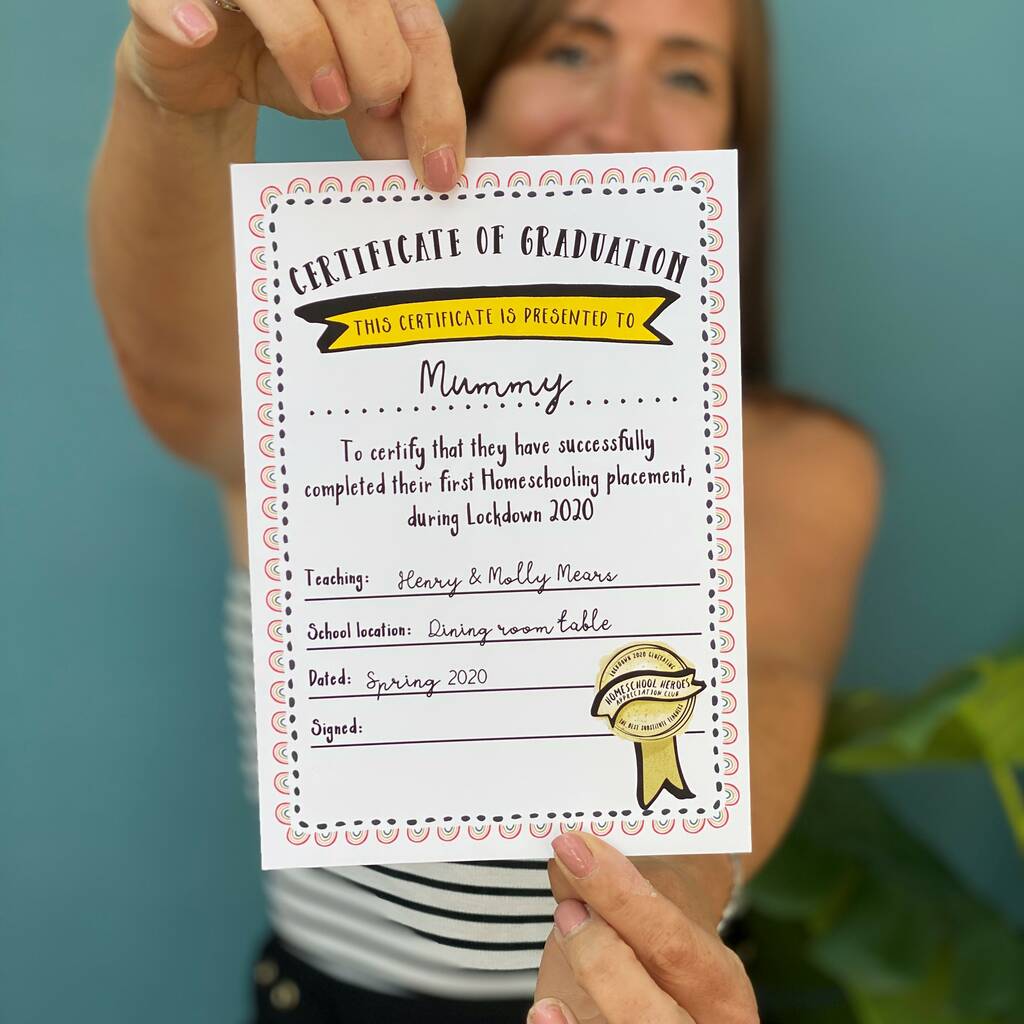 CERTIFICATE OF GRADUATION
THIS CERTIFICATE IS PRESENTED TO
Mummy
To certify that they have successfully
completed their first Homeschooling placement,
during Lockdown 2020
Teaching: Henry & Molly Mears
School location: Dining room table
Dated: Spring 2020
Signed:
LOCKDOWN 2020 GENERATION
HOMESCHOOL HEROES
APPRECIATION CLUB
THE BEST SUBSTITUTE TEACHER